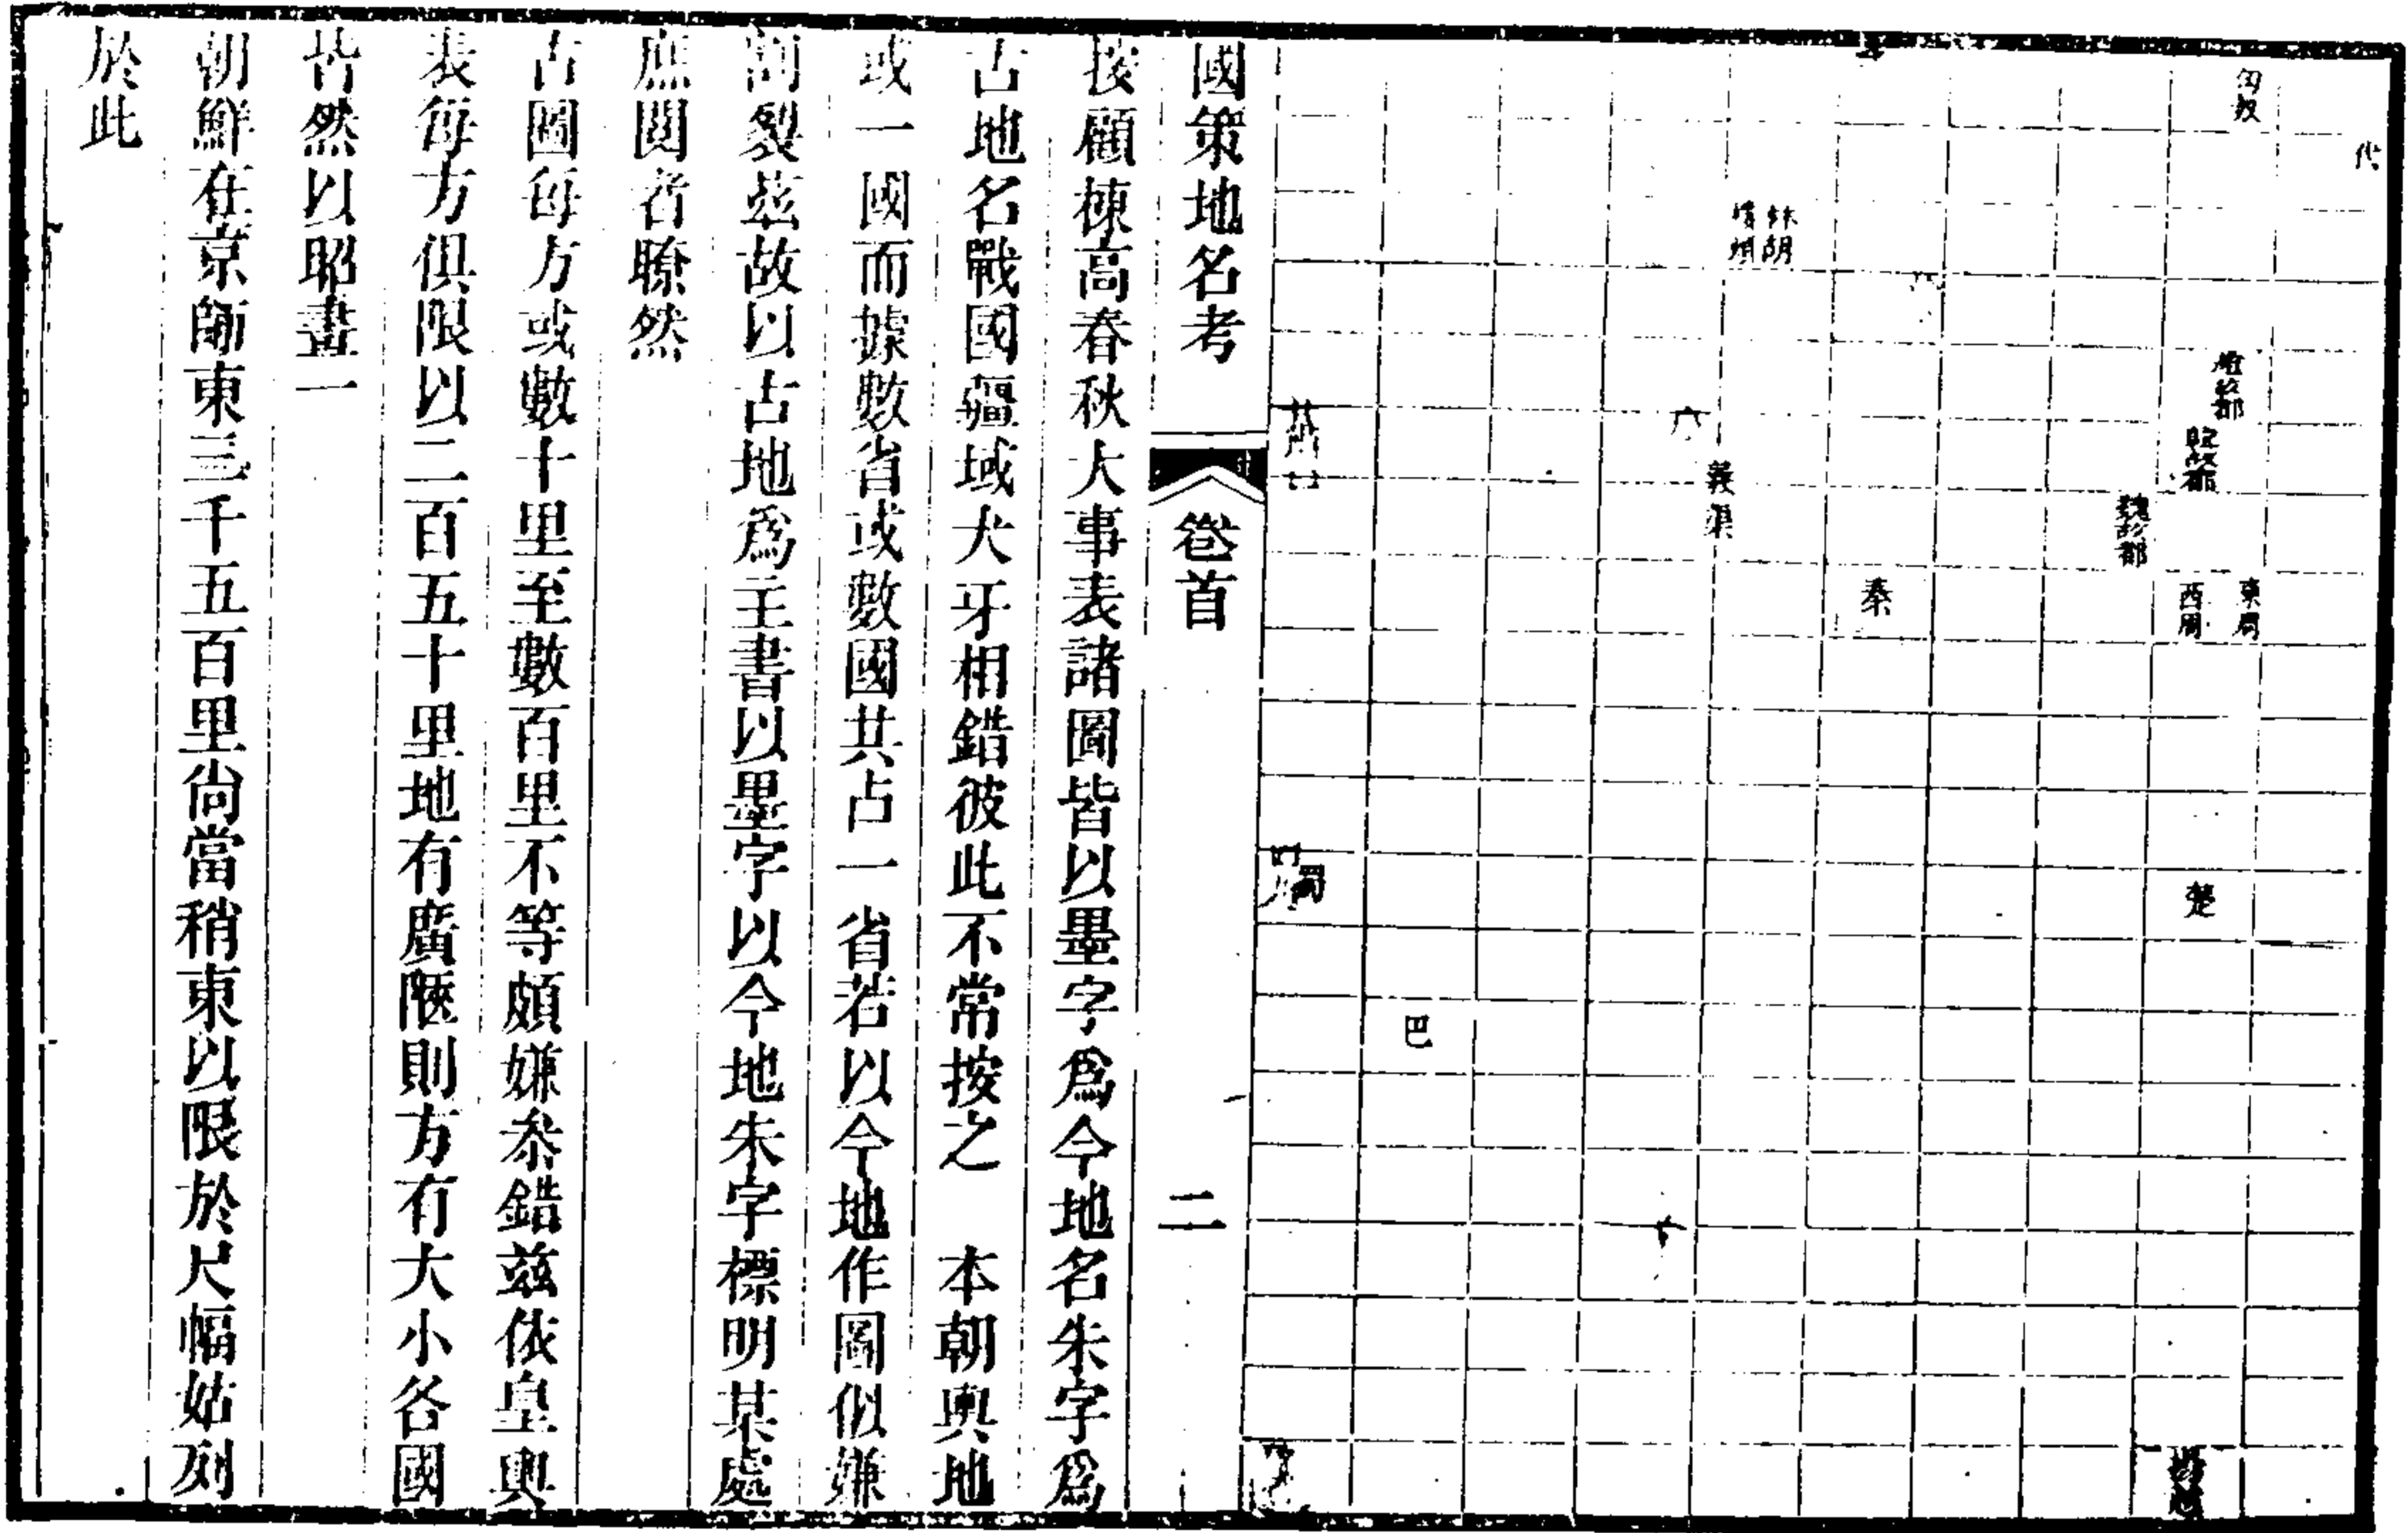 匈奴
代
林胡
義渠
魏彭郡
秦
東周
西周
楚
蜀
巴
國策地名考
卷首
二
按顧棟高春秋大事表諸圖皆以墨字爲今地名朱字爲
古地名戰國疆域犬牙相錯彼此不常按之　本朝輿地
或一國而據數省或數國共占一省若以今地作圖似嫌
割裂茲故以古地爲主書以墨字以今地朱字標明某處
庶閱者瞭然
古圖每方或數十里至數百里不等頗嫌叅錯茲依皇輿
表每方俱限以二百五十里地有廣陿則方有大小各國
皆然以昭畫一
朝鮮在京師東三千五百里尙當稍東以限於尺幅姑列
於此